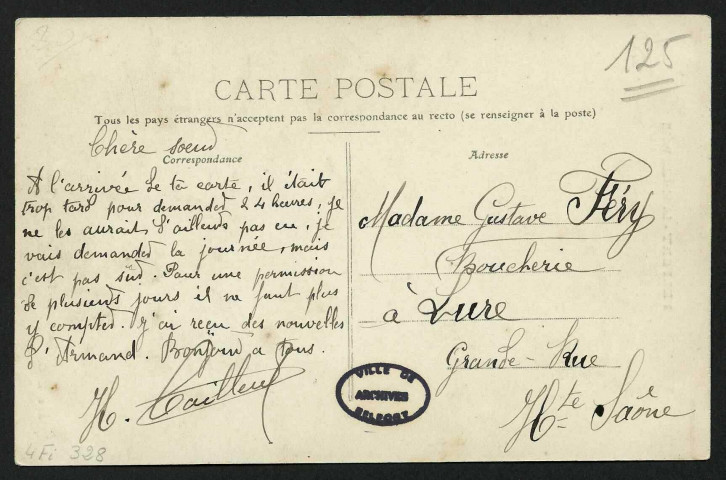 125
CARTE POSTALE
Tous les pays étrangers n'acceptent pas la correspondance au recto (se renseigner à la poste)
Chère soeur
Correspondance
A l'arrivée de ta carte, il était
trop tard pour demander 24 heures, je
ne les aurait d'ailleurs pas eu, je
vais demander la journée, mais
c'est pas sûr. Pour une permission
de plusieurs jours il ne faut plus
y compter. J'ai reçu des nouvelles
d'Armand. Bonjour a tous.
H. Tailleur
Adresse
Madame Gustave Féry
Boucherie
à Lure
Grande-Rue
Hte Saône
VILLE DE
ARCHIVES
BELFORT
4Fi 328